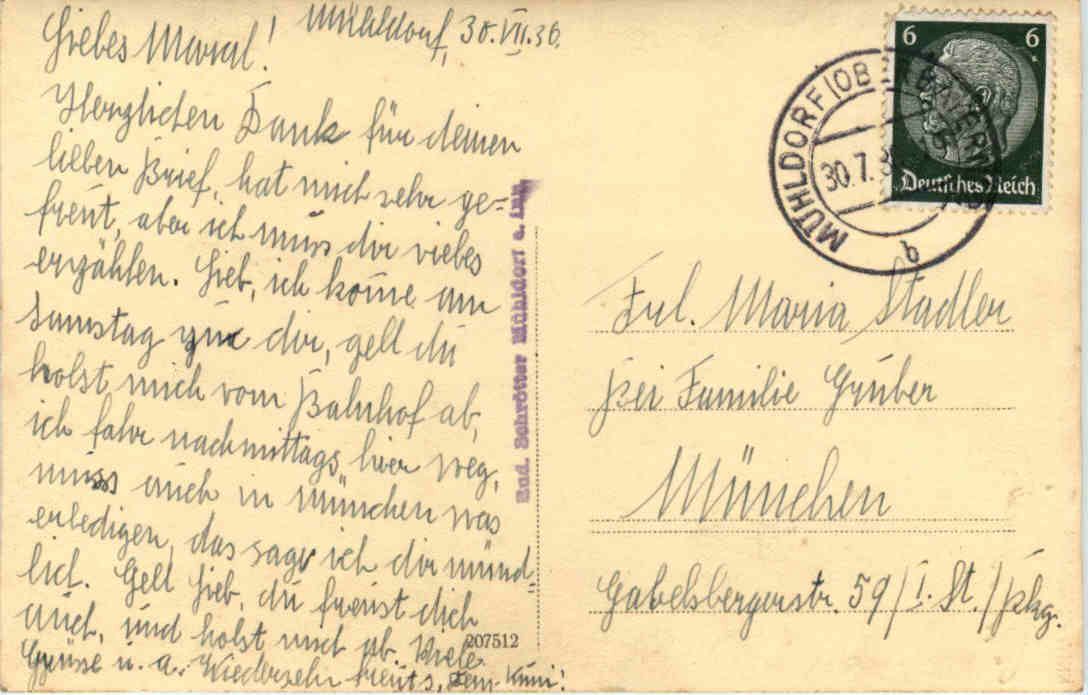 Mühldorf, 30.VII.36.
Liebes Maral!
Herzlichen Dank für deinen
lieben Brief, hat mich sehr ge=
freut, aber ich muss dir vieles
erzählen. Lieb, ich kom̄e am
Samstag zu dir, gell du
holst mich vom Bahnhof ab,
ich fahr nachmittags hier weg,
muss auch in München was
erledigen, das sage ich dir münd=
lich. Gell Lieb, du freust dich
auch, und holst mich ab. Viele
Grüsse u. a. Wiedersehn freut s. dein
207512
Rud. Schrötter Mühldorf a. Inn
6 6
Deutsches Reich
MÜHLDORF (OBERBAYERN)
30.7.36
b
Frl. Maria Stadler
Bei Familie Gruber
München
Gabelsbergerstr. 59/I. St./